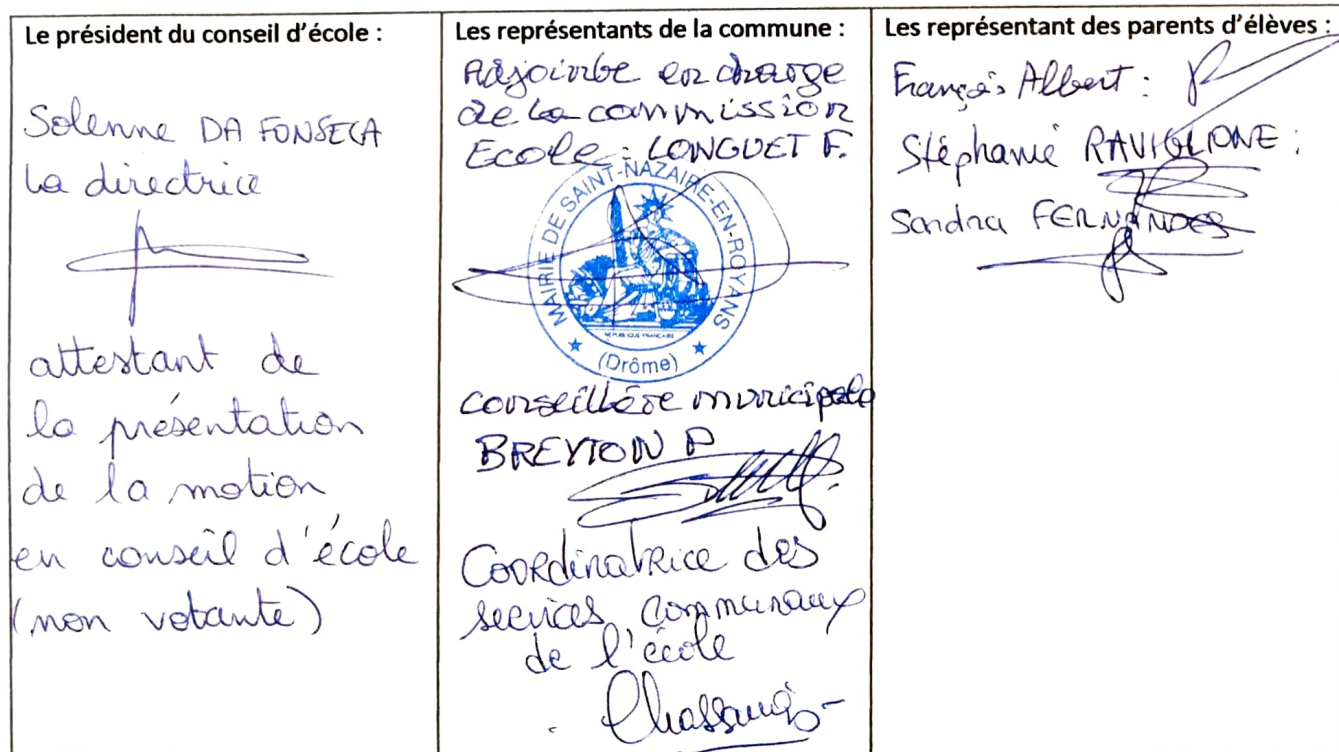 Le président du conseil d'école :
Solenne DA FONSECA
La directrice
attestant de
la présentation
de la motion
en conseil d'école
(non votante)
Les représentants de la commune :
Adjointe en charge
de la commission
Ecole : LONGUET F.
MAIRIE DE SAINT-NAZAIRE-EN-ROYANS
RÉPUBLIQUE FRANÇAISE
(Drôme)
conseillère municipale
BREYTON P
Coordinatrice des
services communaux
de l'école
Les représentant des parents d'élèves :
François Albert :
Stéphanie RAVIGLIONE :
Sandra FERNANDES